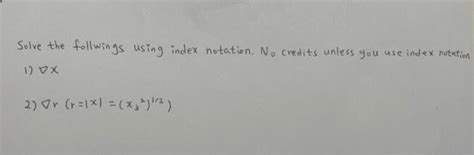 Solve the follwings using index notation. No credits unless you use index notation
1) ∇x
2) ∇r (r=|x| =(x₃²)^1/2)